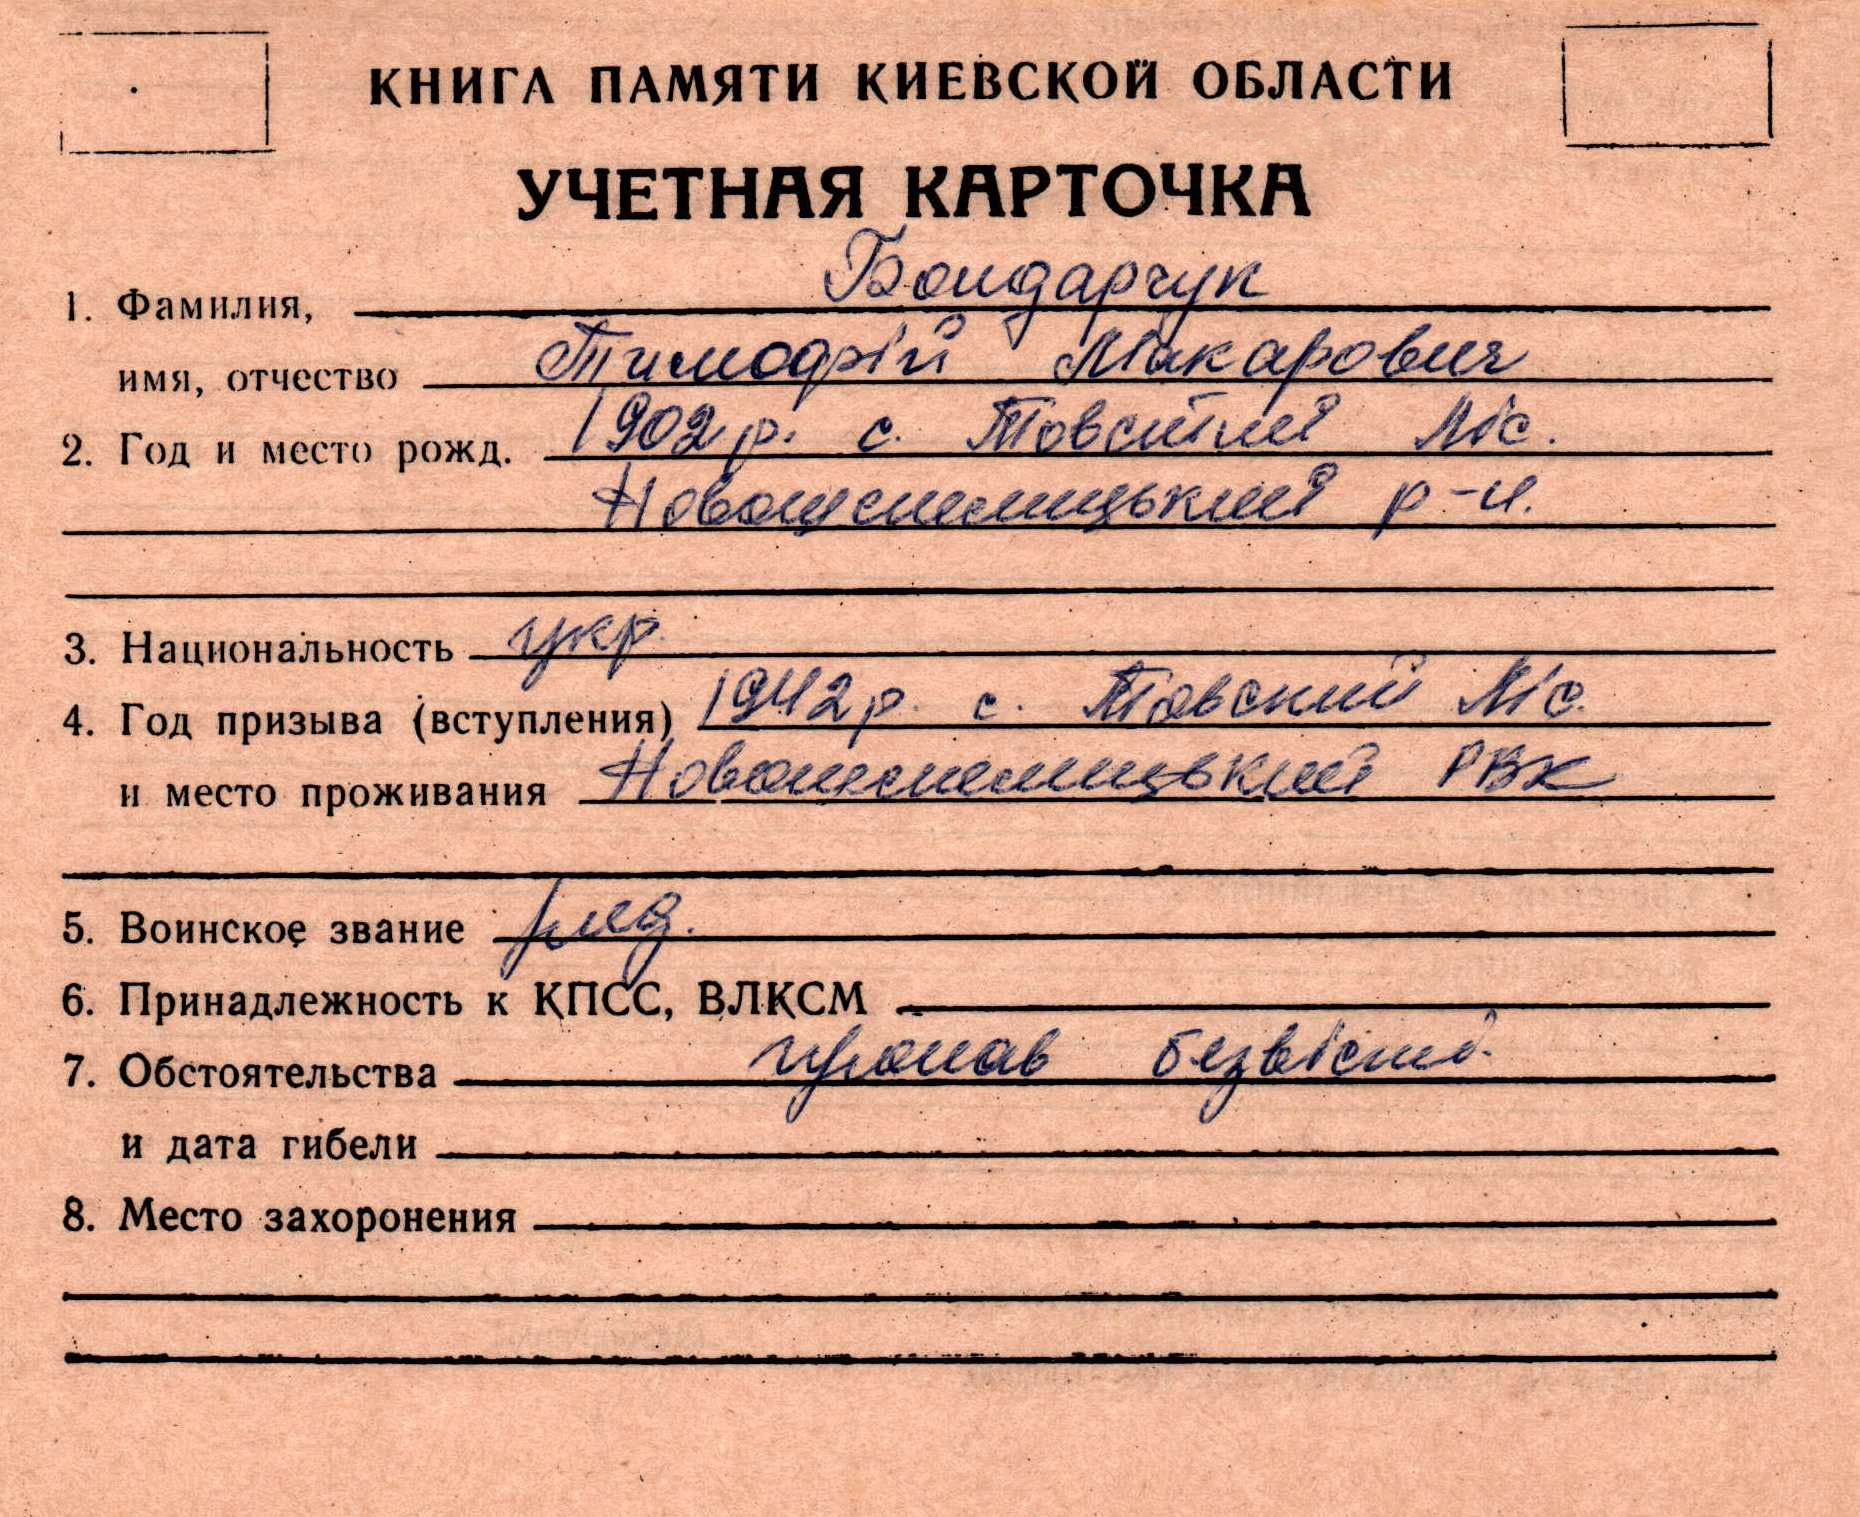 КНИГА ПАМЯТИ КИЕВСКОЙ ОБЛАСТИ
УЧЕТНАЯ КАРТОЧКА
1. Фамилия, Бондарчук
имя, отчество Тимофій Макарович
2. Год и место рожд. 1902 р. с. Товстий Ліс.
Новошепелицький р-н.
3. Национальность укр.
4. Год призыва (вступления) 1942 р. с. Товский Ліс.
и место проживания Новошепелицький РВК
5. Воинское звание ряд.
6. Принадлежность к КПСС, ВЛКСМ
7. Обстоятельства пропав безвісті.
и дата гибели
8. Место захоронения